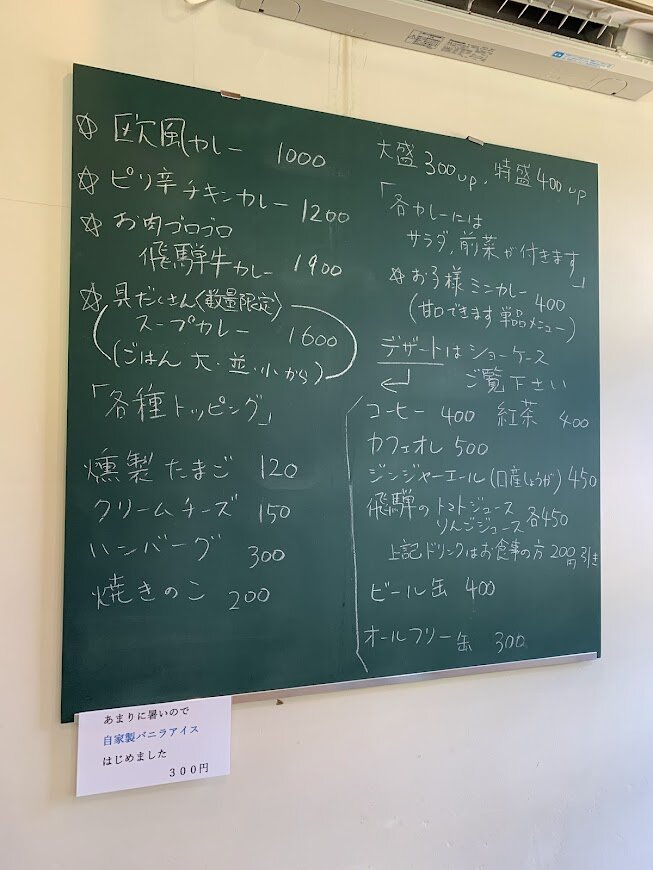 ☆ 欧風カレー 1000
☆ ピリ辛チキンカレー 1200
☆ お肉ゴロゴロ
飛騨牛カレー 1900
☆ 具だくさん〈数量限定〉
スープカレー 1600
(ごはん 大・並・小から)
「各種トッピング」
燻製たまご 120
クリームチーズ 150
ハンバーグ 300
焼きのこ 200
大盛300up、特盛400up
「各カレーには
サラダ、前菜が付きます」
☆ お子様ミニカレー 400
(甘口できます 単品メニュー)
デザートはショーケース
ご覧下さい
コーヒー 400 紅茶 400
カフェオレ 500
ジンジャーエール(国産しょうが) 450
飛騨のトマトジュース
りんごジュース 各450
上記ドリンクはお食事の方200円引き
ビール缶 400
オールフリー缶 300
あまりに暑いので
自家製バニラアイス
はじめました
300円